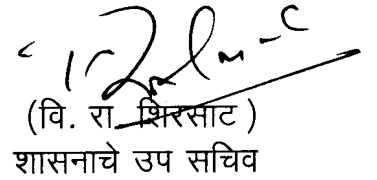 (वि. रा. शिरसाट )
शासनाचे उप सचिव